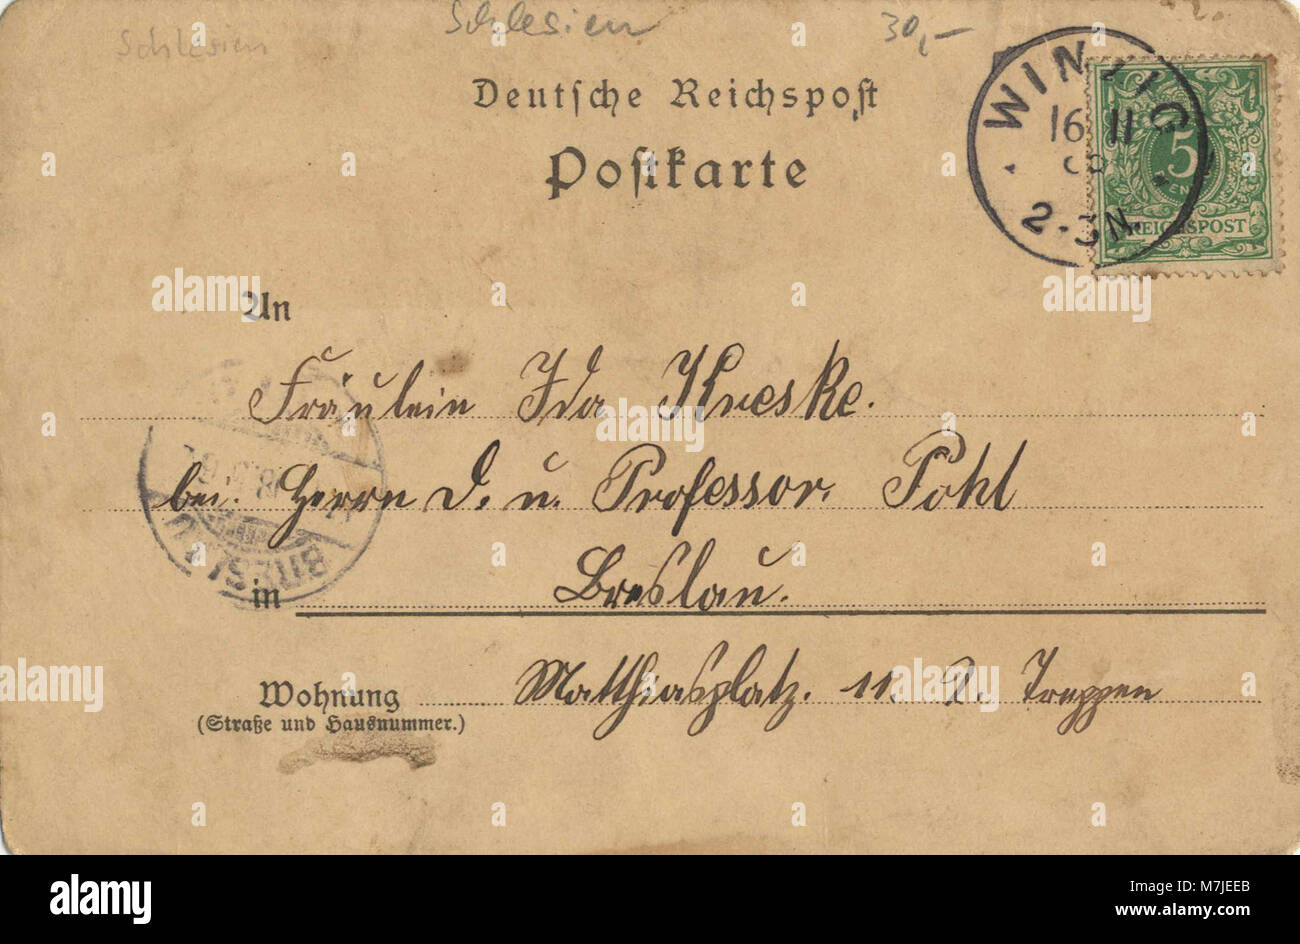 Schlesien Schlesien 30,-
Deutsche Reichspost
Postkarte
WINZIG
16 11
2-3N.
5
REICHSPOST
An
Fräulein Ida Kreske.
bei Herrn D. u. Professor Pohl
BRESLAU
in Breslau.
Wohnung Matthiasplatz. 11. 2. Treppen
(Straße und Hausnummer.)
alamy
Image ID: M7JEEB
www.alamy.com